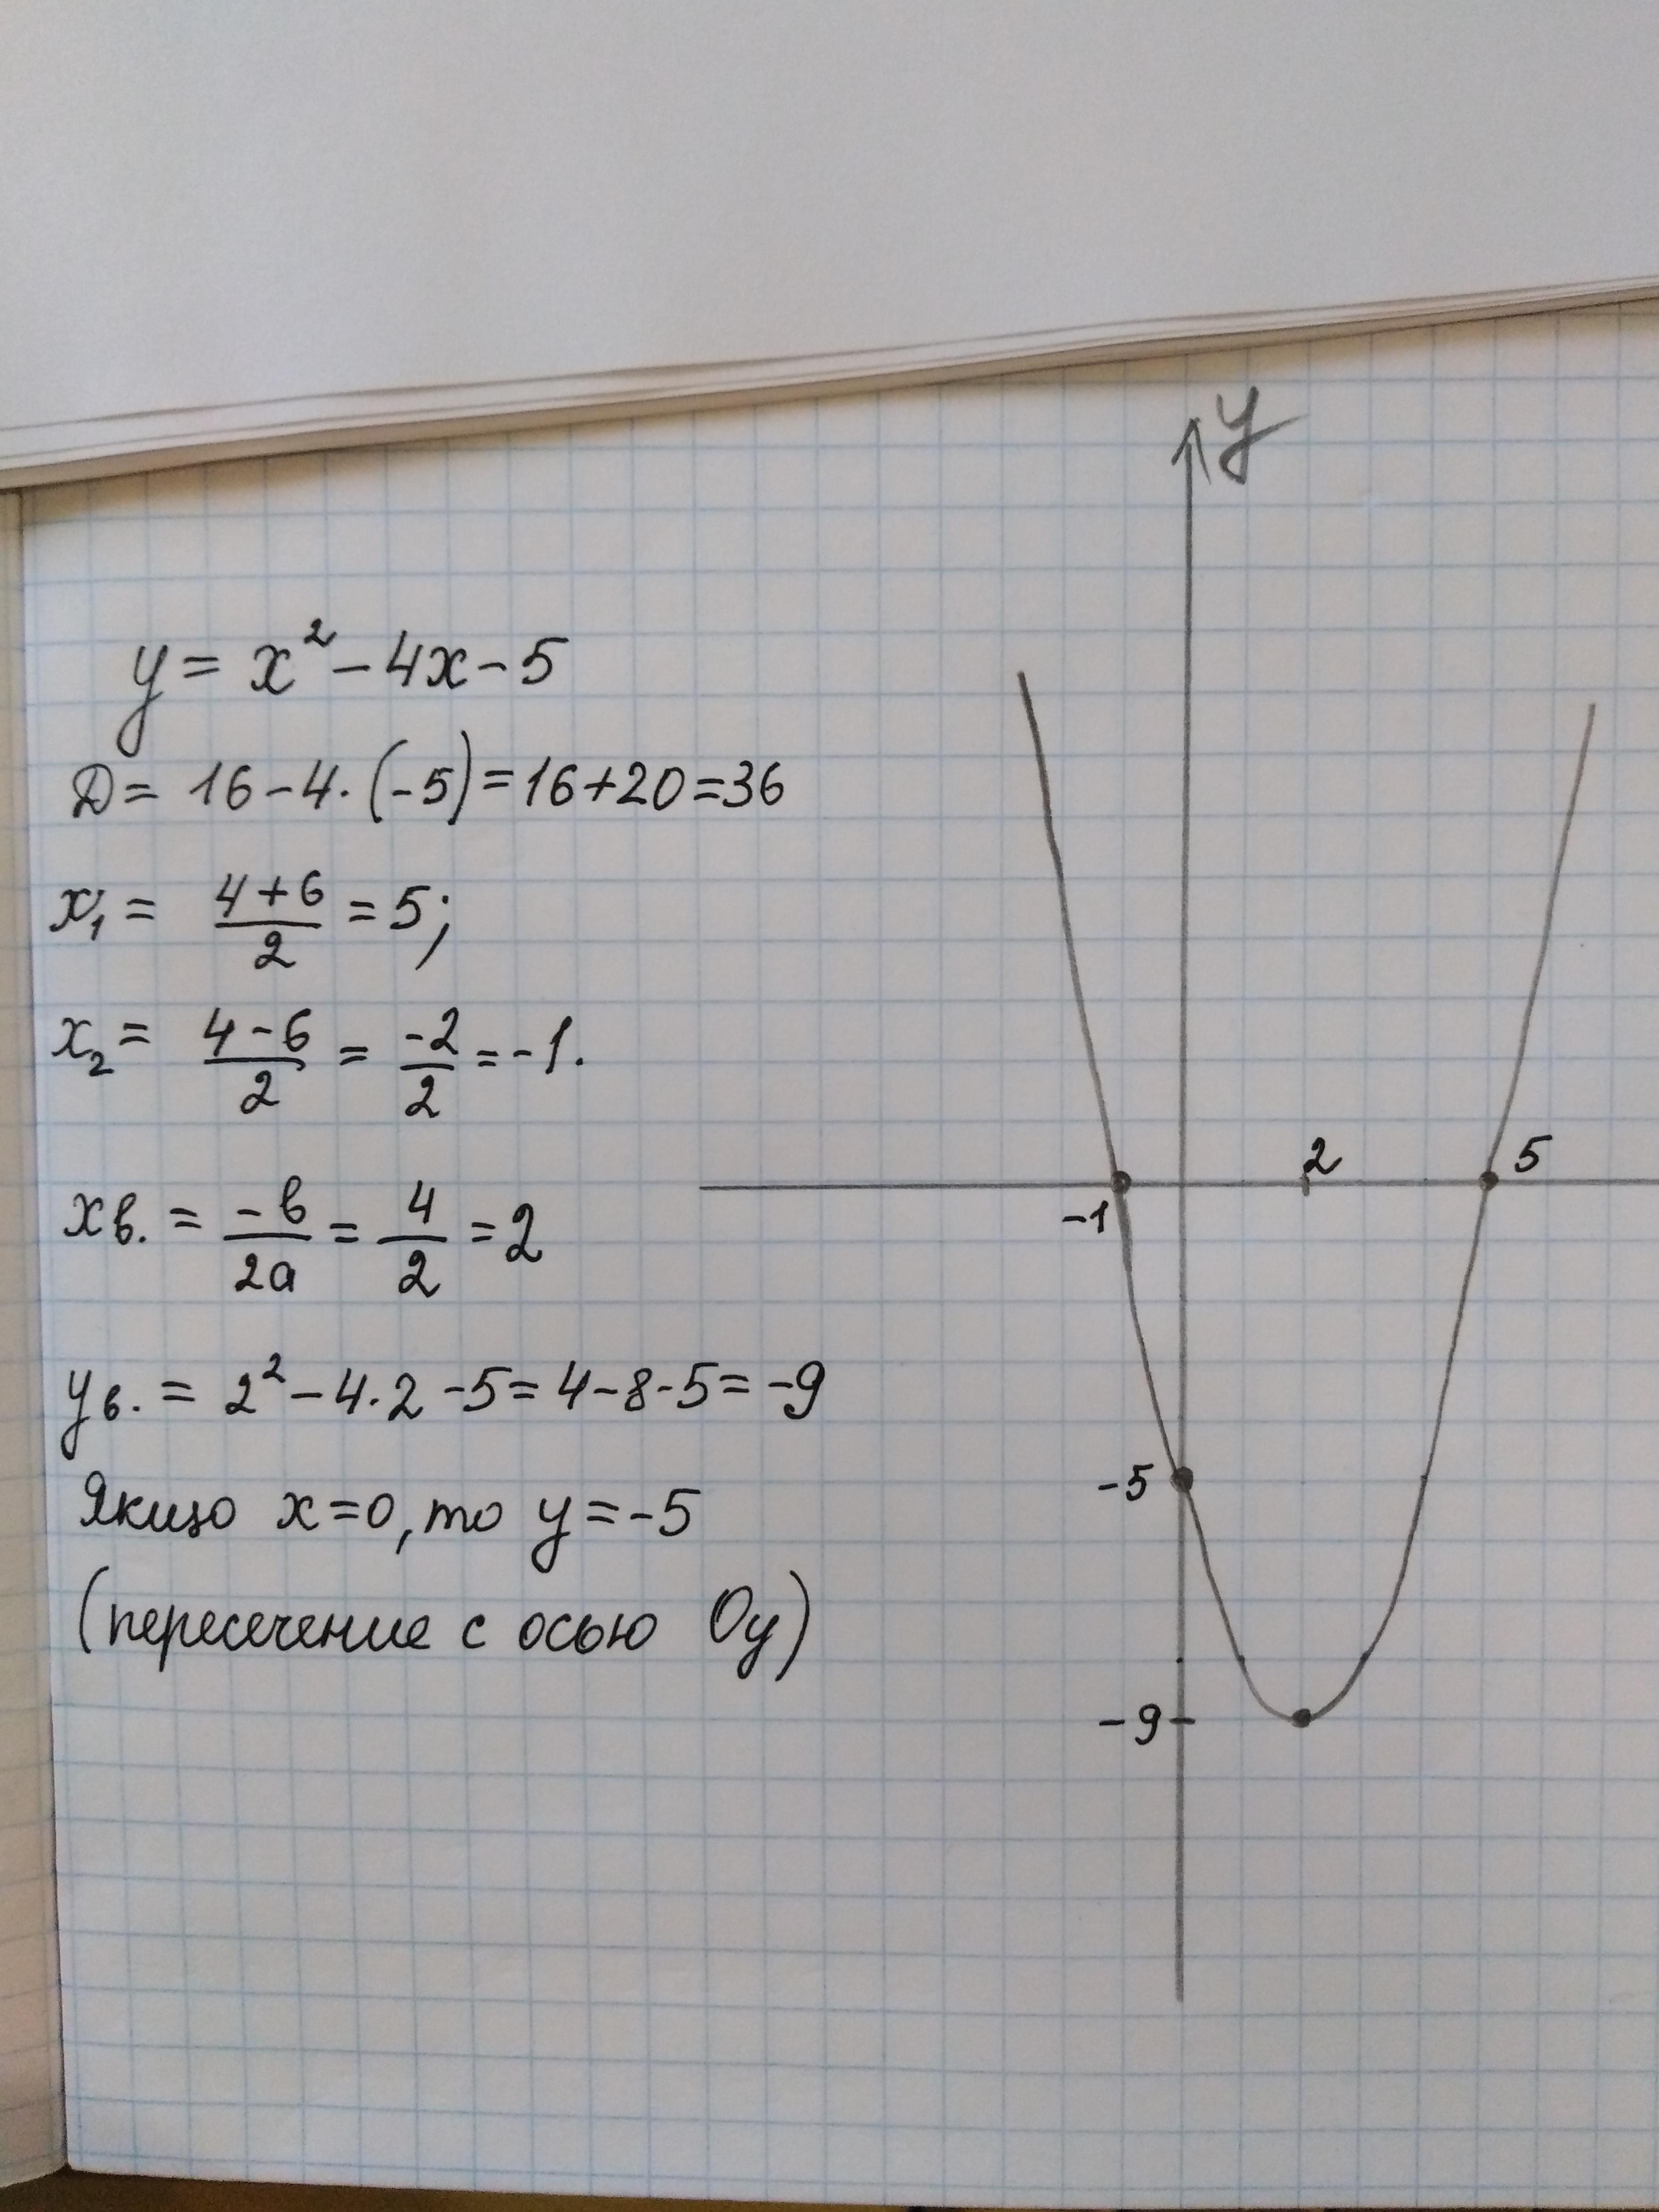 y = x² - 4x - 5
D = 16 - 4 · (-5) = 16 + 20 = 36
x₁ = (4+6)/2 = 5;
x₂ = (4-6)/2 = -2/2 = -1.
xв. = -b/2a = 4/2 = 2
yв. = 2² - 4·2 - 5 = 4 - 8 - 5 = -9
Якщо x=0, то y = -5
(пересечение с осью Oy)
y
2
5
-1
-5
-9